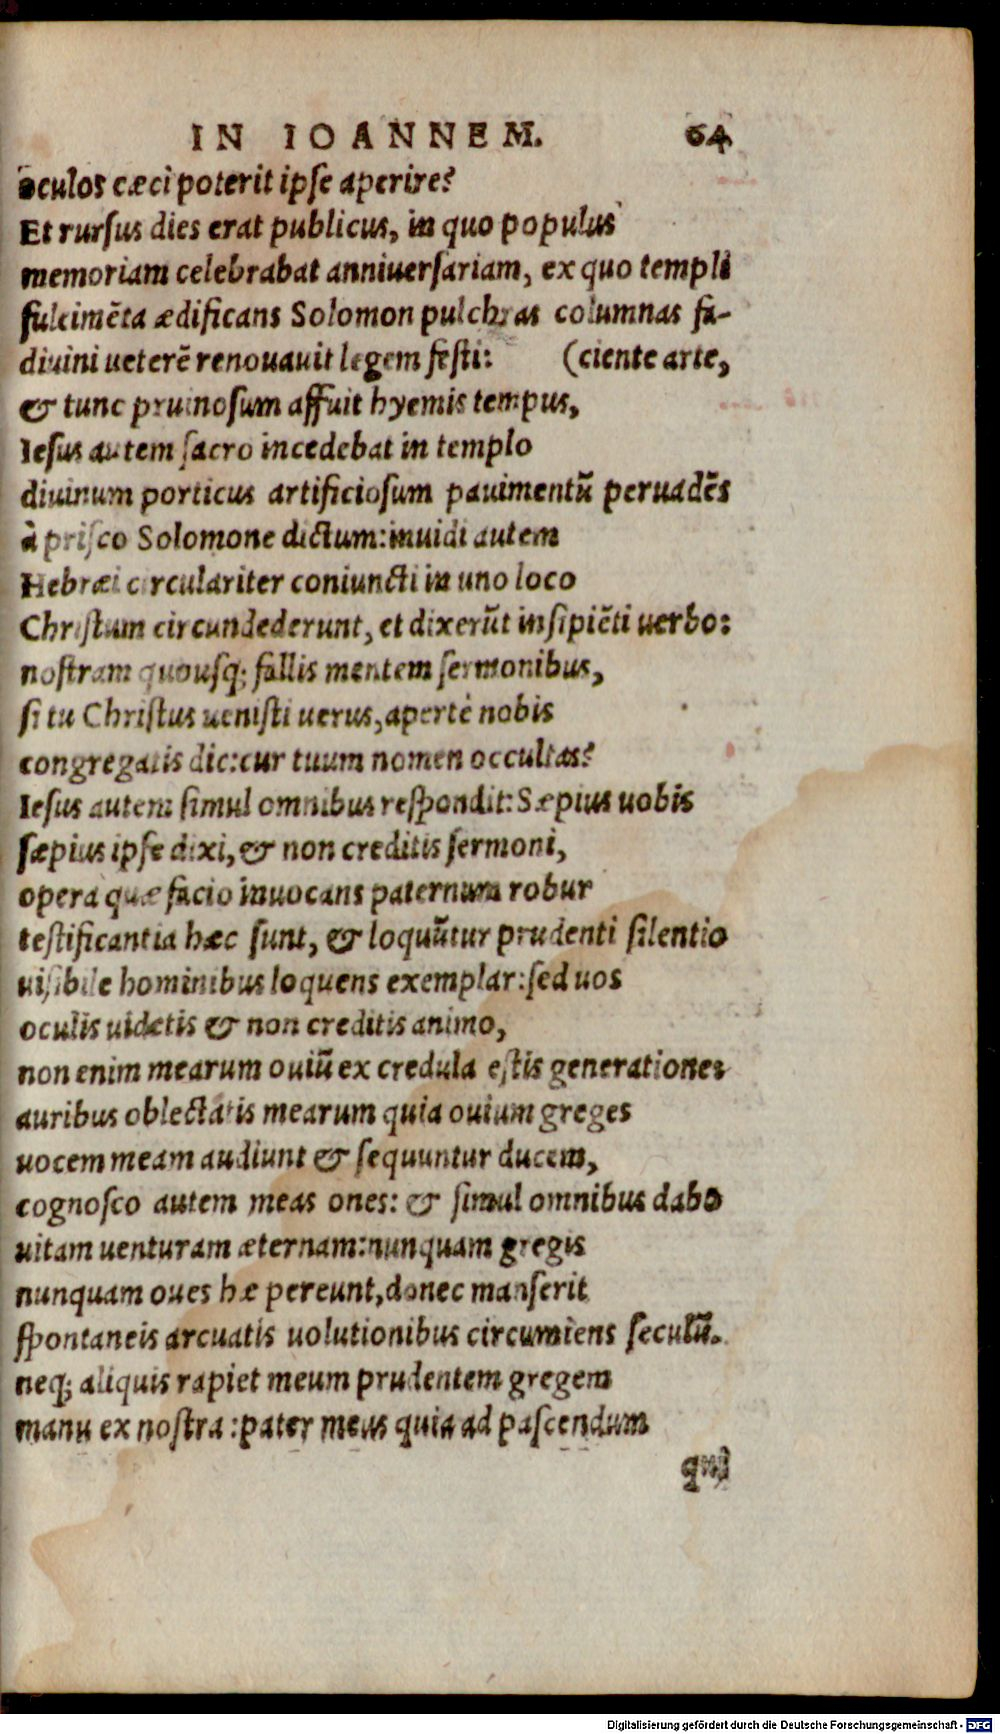 IN IOANNEM. 64
oculos cæci poterit ipse aperire?
Et rursus dies erat publicus, in quo populus
memoriam celebrabat anniuersariam, ex quo templi
fulcimẽta ædificans Solomon pulchras columnas fa-
diuini ueterẽ renouauit legem festi: (ciente arte,
& tunc pruinosum affuit hyemis tempus,
Iesus autem sacro incedebat in templo
diuinum porticus artificiosum pauimentũ peruadẽs
à prisco Solomone dictum: inuidi autem
Hebræi circulariter coniuncti in uno loco
Christum circundederunt, et dixerũt insipiẽti uerbo:
nostram quousq; fallis mentem sermonibus,
si tu Christus uenisti uerus, apertè nobis
congregatis dic: cur tuum nomen occultas?
Iesus autem simul omnibus respondit: Sæpius uobis
sæpius ipse dixi, & non creditis sermoni,
opera quæ facio inuocans paternum robur
testificantia hæc sunt, & loquũtur prudenti silentio
uisibile hominibus loquens exemplar: sed uos
oculis uidetis & non creditis animo,
non enim mearum ouiũ ex credula estis generatione:
auribus oblectatis mearum quia ouium greges
uocem meam audiunt & sequuntur ducem,
cognosco autem meas ones: & simul omnibus dabo
uitam uenturam æternam: nunquam gregis
nunquam oues hæ pereunt, donec manserit
spontaneis arcuatis uolutionibus circumiens seculũ.
neq; aliquis rapiet meum prudentem gregem
manu ex nostra: pater meus quia ad pascendum
qui
Digitalisierung gefördert durch die Deutsche Forschungsgemeinschaft - DFG